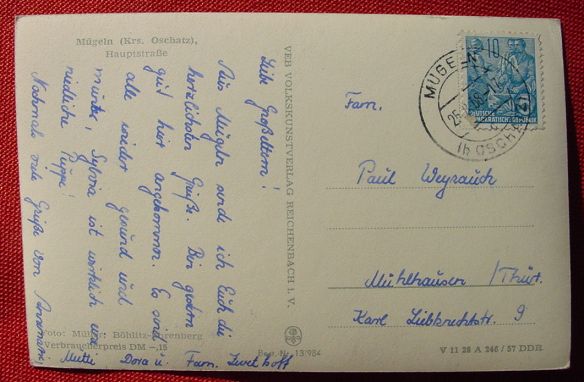 Mügeln (Krs. Oschatz),
Hauptstraße
Liebe Großeltern!
Aus Mügeln sende ich Euch die
herzlichsten Grüße. Bin gestern
gut hier angekommen. Es sind
alle wieder gesund und
munter, Sylvia ist wirklich eine
niedliche Puppe!
Nochmals viele Grüße von
Mutti Dora u. Fam.
Foto: Müller, Böhlitz-Ehrenberg
Verbraucherpreis DM -,15
VEB VOLKSKUNSTVERLAG REICHENBACH I. V.
Best.-Nr. 13/984
MÜGELN
10
DEUTSCHE
DEMOKRATISCHE REPUBLIK
Fam.
Paul Weyrauch
Mühlhausen / Thür.
Karl Liebknechtstr. 9
V 11 28 A 246 / 57 DDR